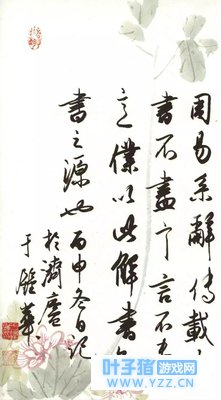 周易系辭傳載
書不盡言不
意僕以此解書
書之源也 丙申冬日記
於濟
于
叶子猪游戏网
WWW.YZZ.CN